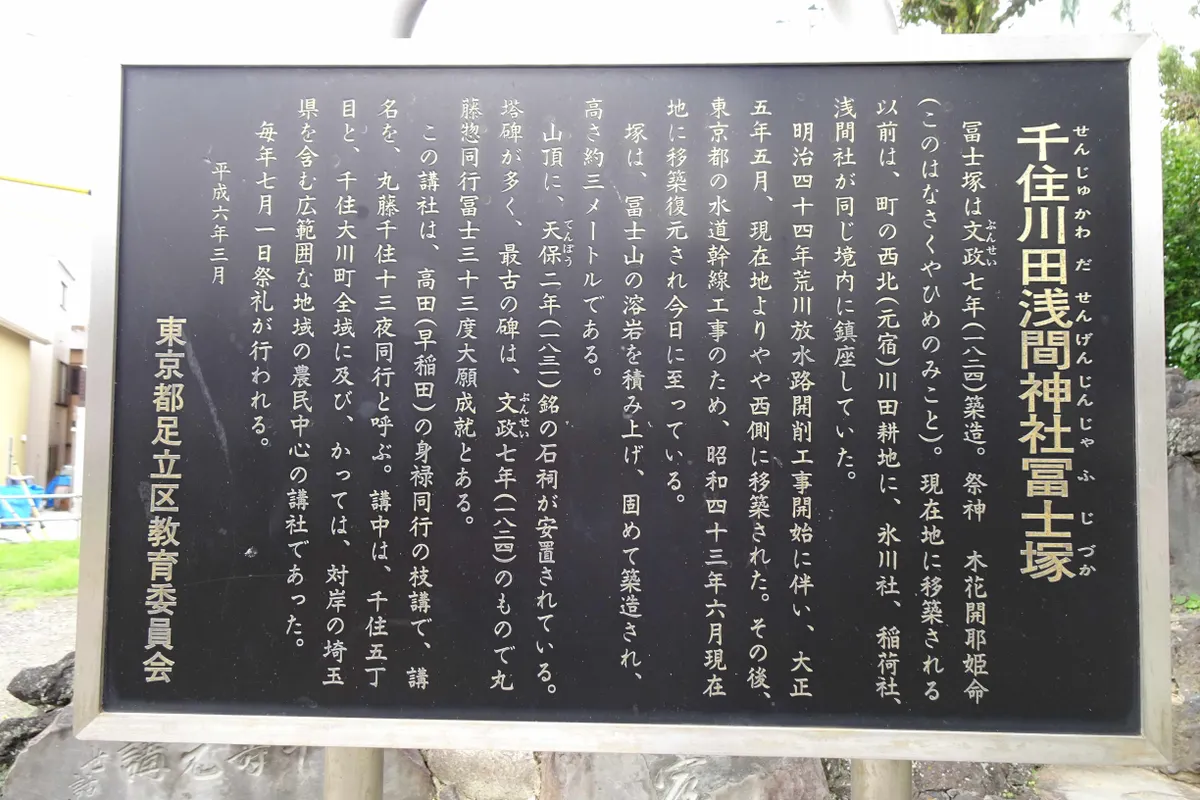 千住川田浅間神社冨士塚
せんじゅかわ だ せんげんじんじゃ ふ じ づか
冨士塚は文政七年(一八二四)築造。祭神 木花開耶姫命
ぶんせい
(このはなさくやひめのみこと)。現在地に移築される
以前は、町の西北(元宿)川田耕地に、氷川社、稲荷社、
浅間社が同じ境内に鎮座していた。
明治四十四年荒川放水路開削工事開始に伴い、大正
五年五月、現在地よりやや西側に移築された。その後、
東京都の水道幹線工事のため、昭和四十三年六月現在
地に移築復元され今日に至っている。
塚は、冨士山の溶岩を積み上げ、固めて築造され、
高さ約三メートルである。
山頂に、天保二年(一八三一)銘の石祠が安置されている。
てんぽう
塔碑が多く、最古の碑は、文政七年(一八二四)のもので丸
ぶんせい
藤惣同行冨士三十三度大願成就とある。
この講社は、高田(早稲田)の身禄同行の枝講で、講
名を、丸藤千住十三夜同行と呼ぶ。講中は、千住五丁
目と、千住大川町全域に及び、かっては、対岸の埼玉
県を含む広範囲な地域の農民中心の講社であった。
毎年七月一日祭礼が行われる。
平成六年三月
東京都足立区教育委員会